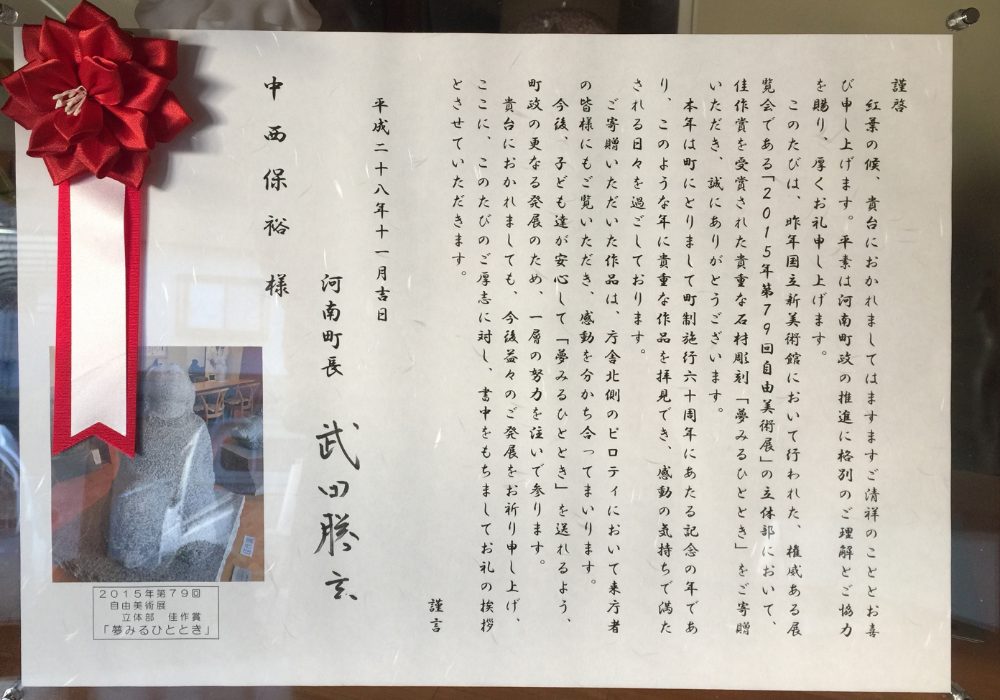 謹啓
紅葉の候、貴台におかれましてはますますご清祥のこととお喜
び申し上げます。平素は河南町政の推進に格別のご理解とご協力
を賜り、厚くお礼申し上げます。
このたびは、昨年国立新美術館において行われた、権威ある展
覧会である「2015年第79回自由美術展」の立体部において、
佳作賞を受賞された貴重な石材彫刻「夢みるひととき」をご寄贈
いただき、誠にありがとうございます。
本年は町にとりまして町制施行六十周年にあたる記念の年であ
り、このような年に貴重な作品を拝見でき、感動の気持ちで満た
される日々を過ごしております。
ご寄贈いただいた作品は、庁舎北側のピロティにおいて来庁者
の皆様にもご覧いただき、感動を分かち合ってまいります。
今後、子ども達が安心して「夢みるひととき」を送れるよう、
町政の更なる発展のため、一層の努力を注いで参ります。
貴台におかれましても、今後益々のご発展をお祈り申し上げ、
ここに、このたびのご厚志に対し、書中をもちましてお礼の挨拶
とさせていただきます。
謹言
平成二十八年十一月吉日
河南町長 武田勝玄
中西保裕 様
2015年第79回
自由美術展
立体部 佳作賞
「夢みるひととき」